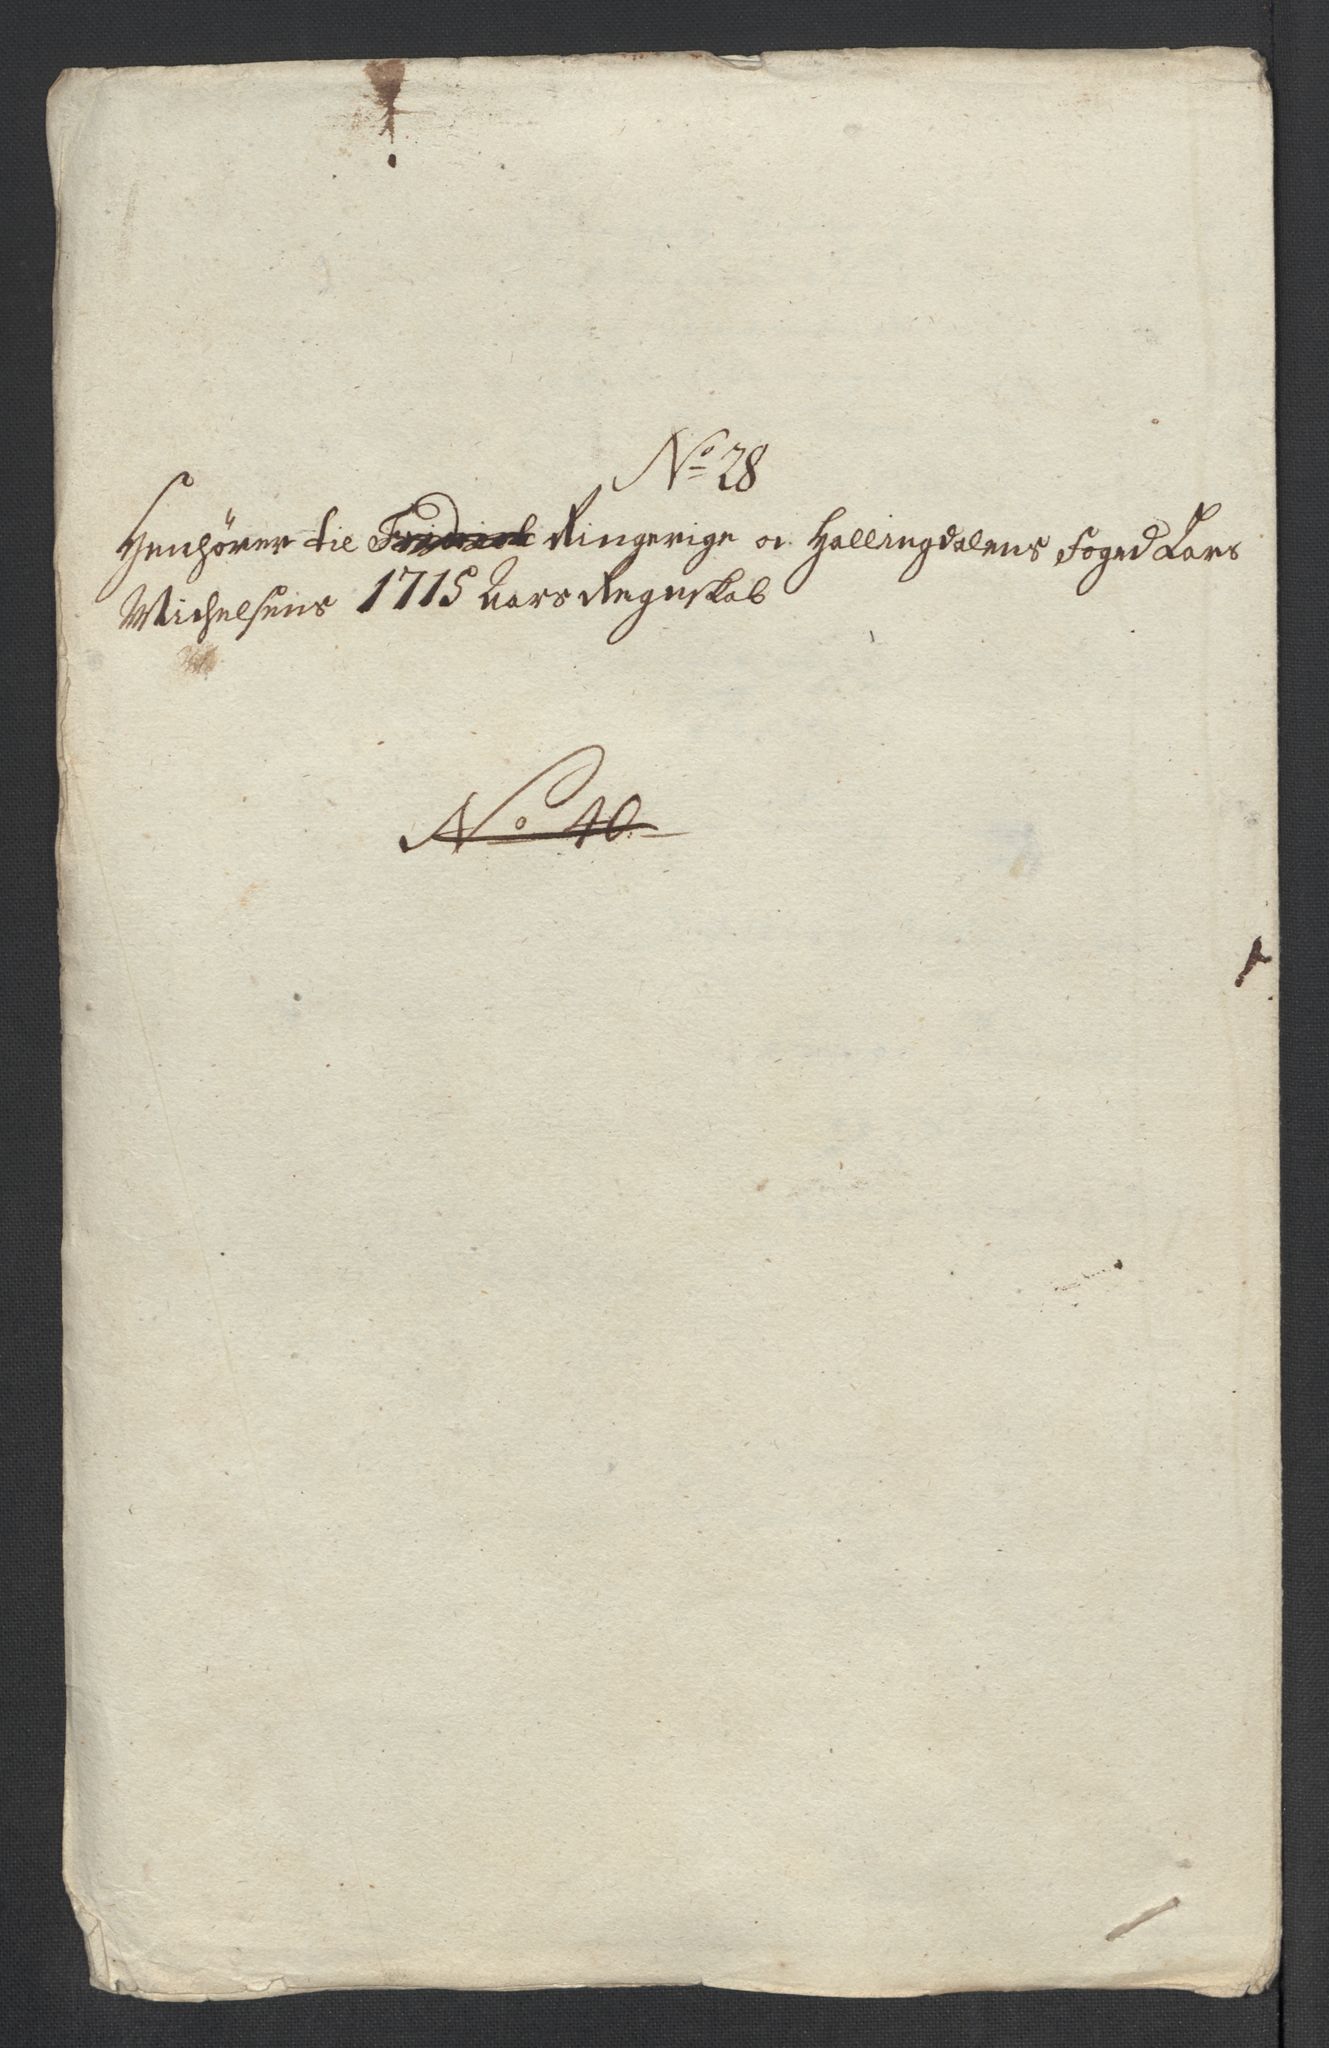 No 28
Henhörer til Ringerige og Hallingdalens Foged Lars
Michelsens 1715 Aars Regnskab
No 40